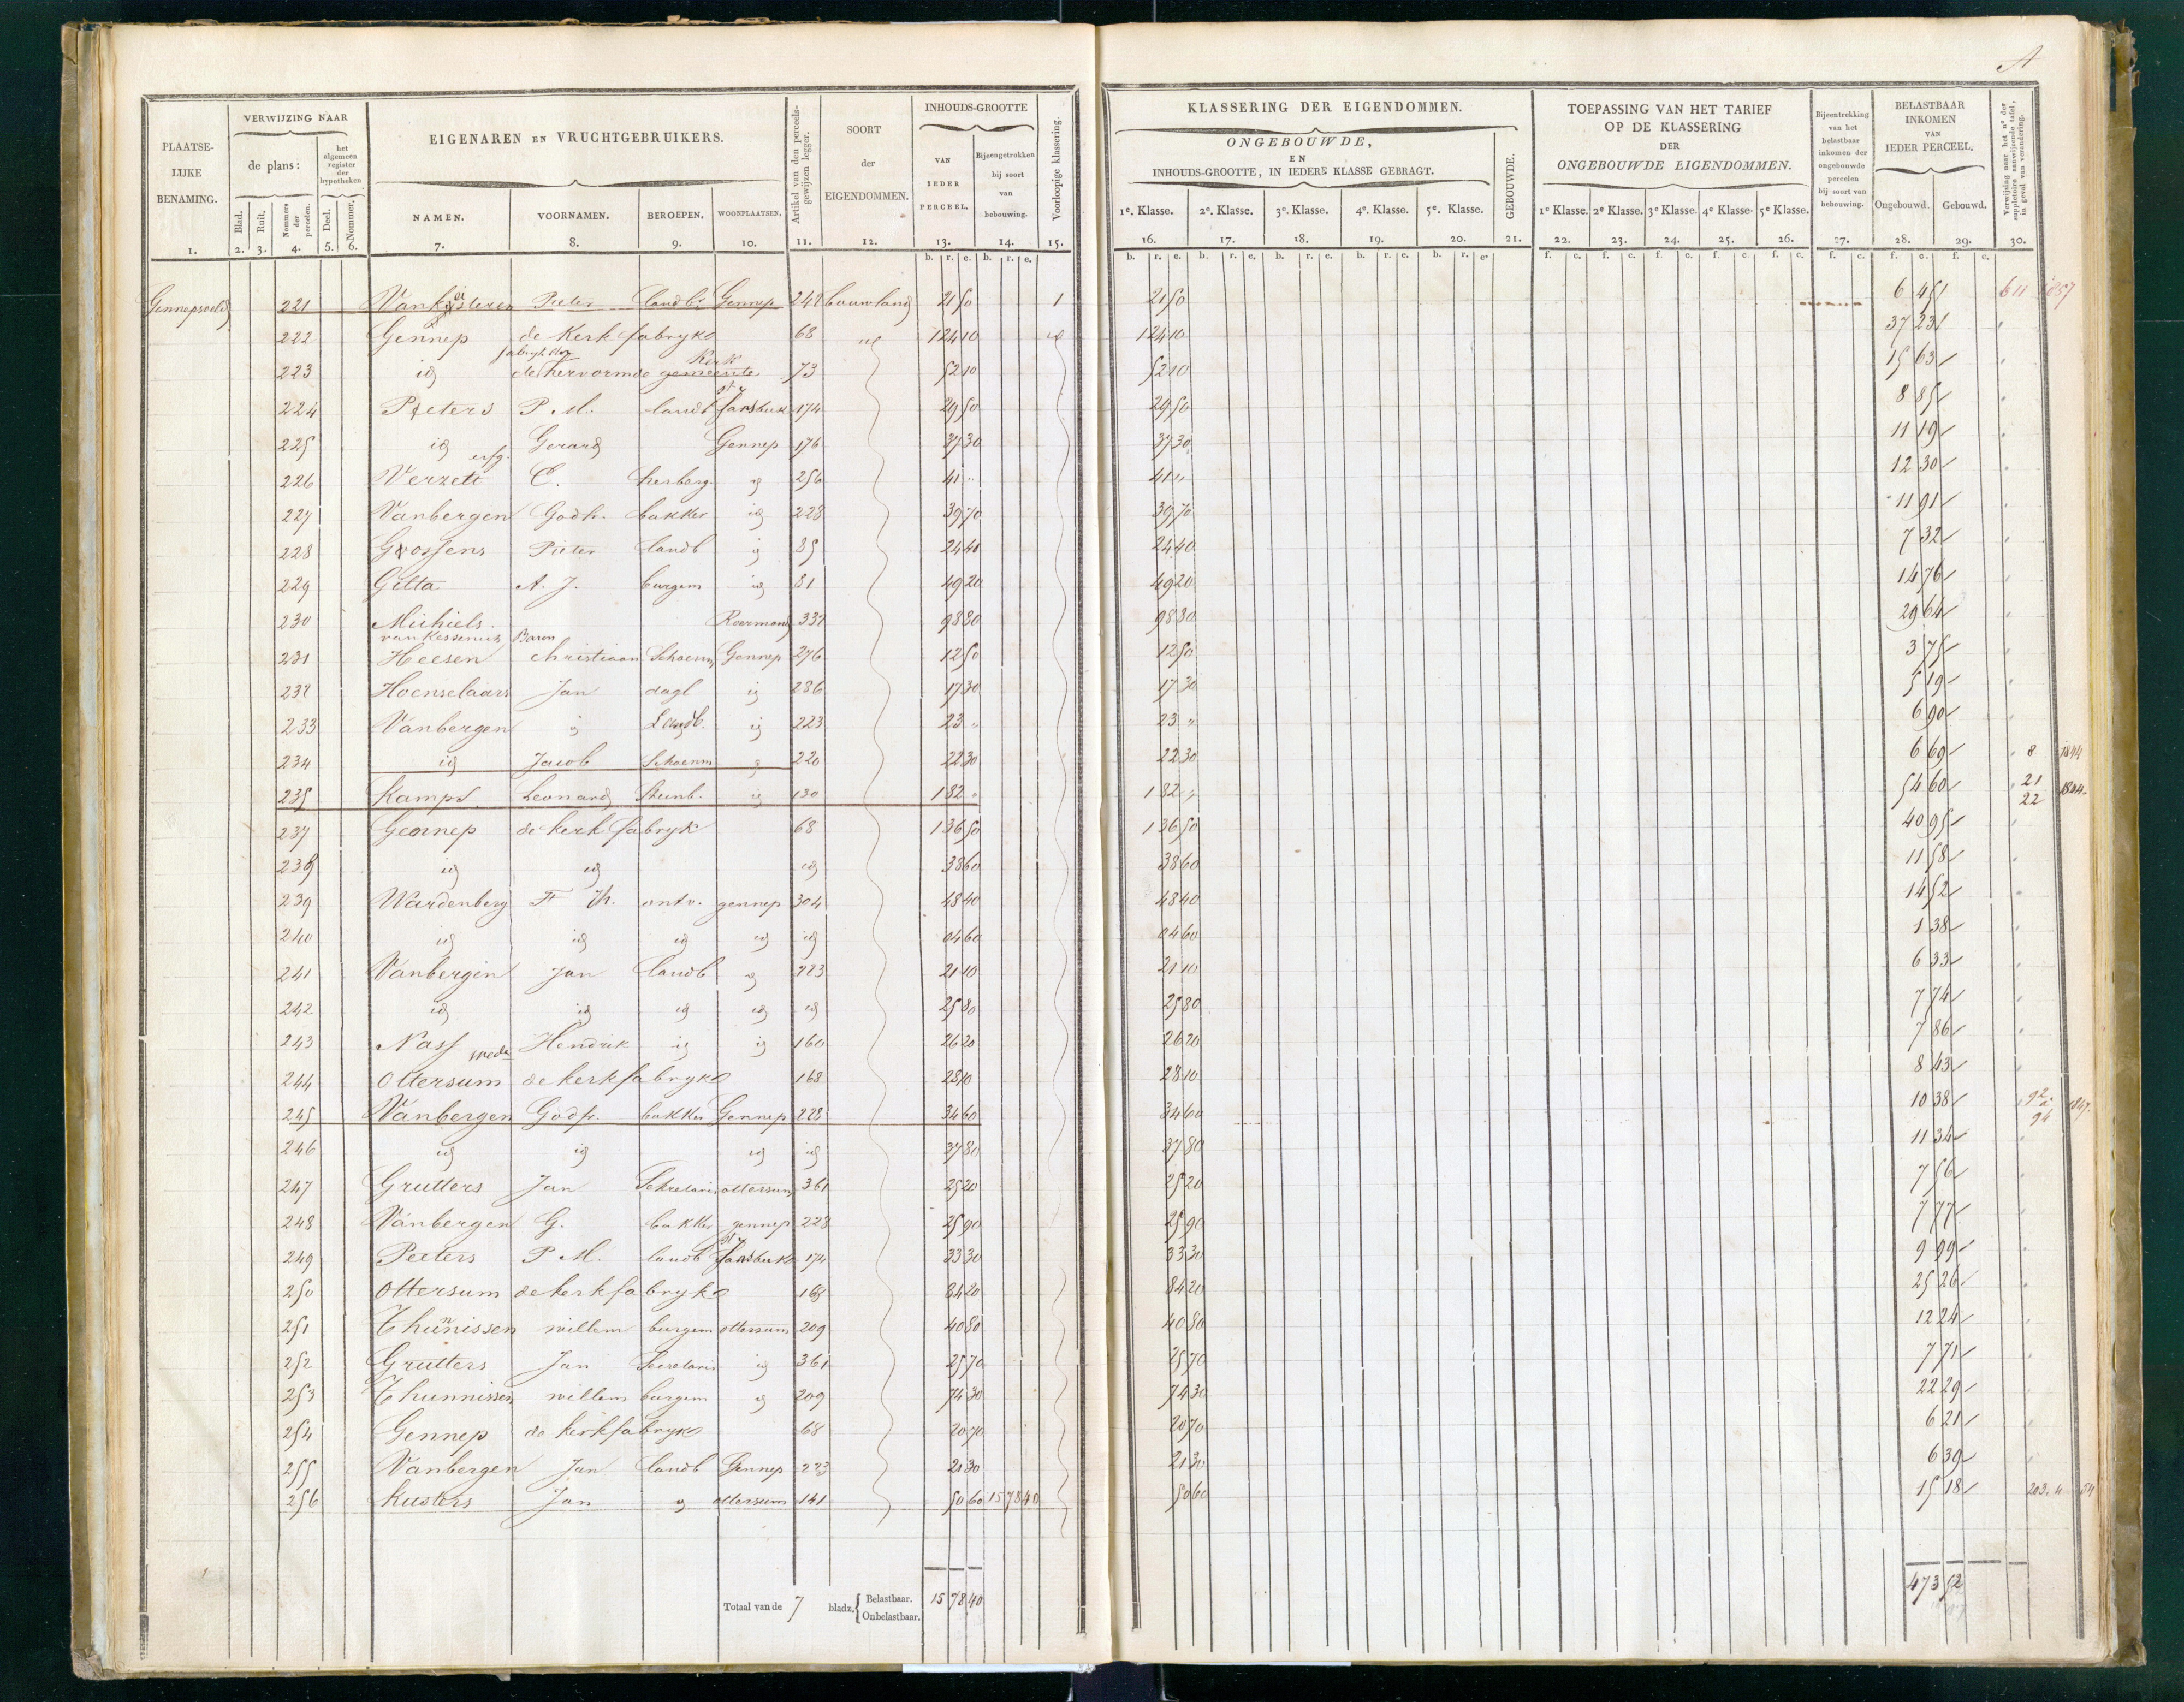 A
PLAATSE-LIJKE BENAMING.
VERWIJZING NAAR
de plans:
het algemeen register der hypotheken
Blad. Ruit. Nommers der perceelen. Deel. Nommer.
EIGENAREN EN VRUCHTGEBRUIKERS.
NAMEN. VOORNAMEN. BEROEPEN. WOONPLAATSEN.
Artikel van den perceels-gewijzen legger.
SOORT der EIGENDOMMEN.
INHOUDS-GROOTTE
VAN IEDER PERCEEL.
Bijeengetrokken bij soort van bebouwing.
Voorloopige klassering.
KLASSERING DER EIGENDOMMEN.
ONGEBOUWDE,
EN
INHOUDS-GROOTTE, IN IEDERE KLASSE GEBRAGT.
GEBOUWDE.
1e. Klasse. 2e. Klasse. 3e. Klasse. 4e. Klasse. 5e. Klasse.
TOEPASSING VAN HET TARIEF
OP DE KLASSERING
DER
ONGEBOUWDE EIGENDOMMEN.
1e Klasse. 2e Klasse. 3e Klasse. 4e Klasse. 5e Klasse.
Bijeentrekking van het belastbaar inkomen der ongebouwde perceelen bij soort van bebouwing.
BELASTBAAR INKOMEN VAN IEDER PERCEEL.
Ongebouwd. Gebouwd.
Verwijzing naar het no der suppletoire aanwijzende tafel, in geval van verandering.
1. 2. 3. 4. 5. 6. 7. 8. 9. 10. 11. 12. 13. 14. 15. 16. 17. 18. 19. 20. 21. 22. 23. 24. 25. 26. 27. 28. 29. 30.
b. r. e. b. r. e. b. r. e. b. r. e. b. r. e. b. r. e. b. r. e. f. c. f. c. f. c. f. c. f. c. f. c. f. c. f. c.
221 Pieter landbr Gennep 242 bouwland 21 50 1 21 50 6 45 611 1857
222 Gennep de Kerk fabryk 68 id 1 24 10 id 1 24 10 37 23
223 id de hervormde gemeente Kerk 73 52 10 52 10 15 63
224 Peters P. M. landb 174 29 50 29 50 8 85
225 id Gerard Gennep 176 37 30 37 30 11 19
226 Verzett erfg. C. herberg id 256 41 " 41 " 12 30
227 Vanbergen Godfr. bakker id 228 39 70 39 70 11 91
228 Goossens Pieter landb id 85 24 40 24 40 7 32
229 Gilta A. J. burgem id 81 49 20 49 20 14 76
230 Michiels van Kessenich Baron Roermond 337 98 80 98 80 29 64
231 Heesen Christiaan Schoenm Gennep 276 12 50 12 50 3 75
232 Hoenselaars Jan dagl id 286 17 30 17 30 5 19
233 Vanbergen id Landb. id 223 23 " 23 " 6 90
234 id Jacob Schoenm id 220 22 30 22 30 6 69 8 1844
235 Kamps Leonard Steenb. id 130 1 82 " 1 82 " 54 60 21 22 1844
237 Gennep de kerk fabryk 68 1 36 50 1 36 50 40 95
238 id id id 38 60 38 60 11 58
239 Wardenberg F Th. ontv. gennep 304 48 40 48 40 14 52
240 id id id id id 04 60 04 60 1 38
241 Vanbergen Jan landb id 223 21 10 21 10 6 33
242 id id id id id 25 80 25 80 7 74
243 Nass wede Hendrik id id 160 26 20 26 20 7 86
244 Ottersum de kerkfabryk 168 28 10 28 10 8 43
245 Vanbergen Godfr. bakker Gennep 228 34 60 34 60 10 38 92 a 94 1847
246 id id id id 37 80 37 80 11 34
247 Grutters Jan Sekretaris ottersum 361 25 20 25 20 7 56
248 Vanbergen G. bakker gennep 228 25 90 25 90 7 77
249 Peeters P M. landb 174 33 30 33 30 9 99
250 Ottersum de kerkfabryk 168 84 20 84 20 25 26
251 Thunnissen willem burgem ottersum 209 40 80 40 80 12 24
252 Grutters Jan Secretaris id 361 25 70 25 70 7 71
253 Thunnissen willem burgem id 209 74 30 74 30 22 29
254 Gennep de kerkfabryk 68 20 70 20 70 6 21
255 Vanbergen Jan landb Gennep 223 21 30 21 30 6 39
256 Kusters Jan id ottersum 141 50 60 15 78 40 50 60 15 18 203. 4 54
Totaal van de 7 bladz. Belastbaar. Onbelastbaar. 15 78 40 473 52